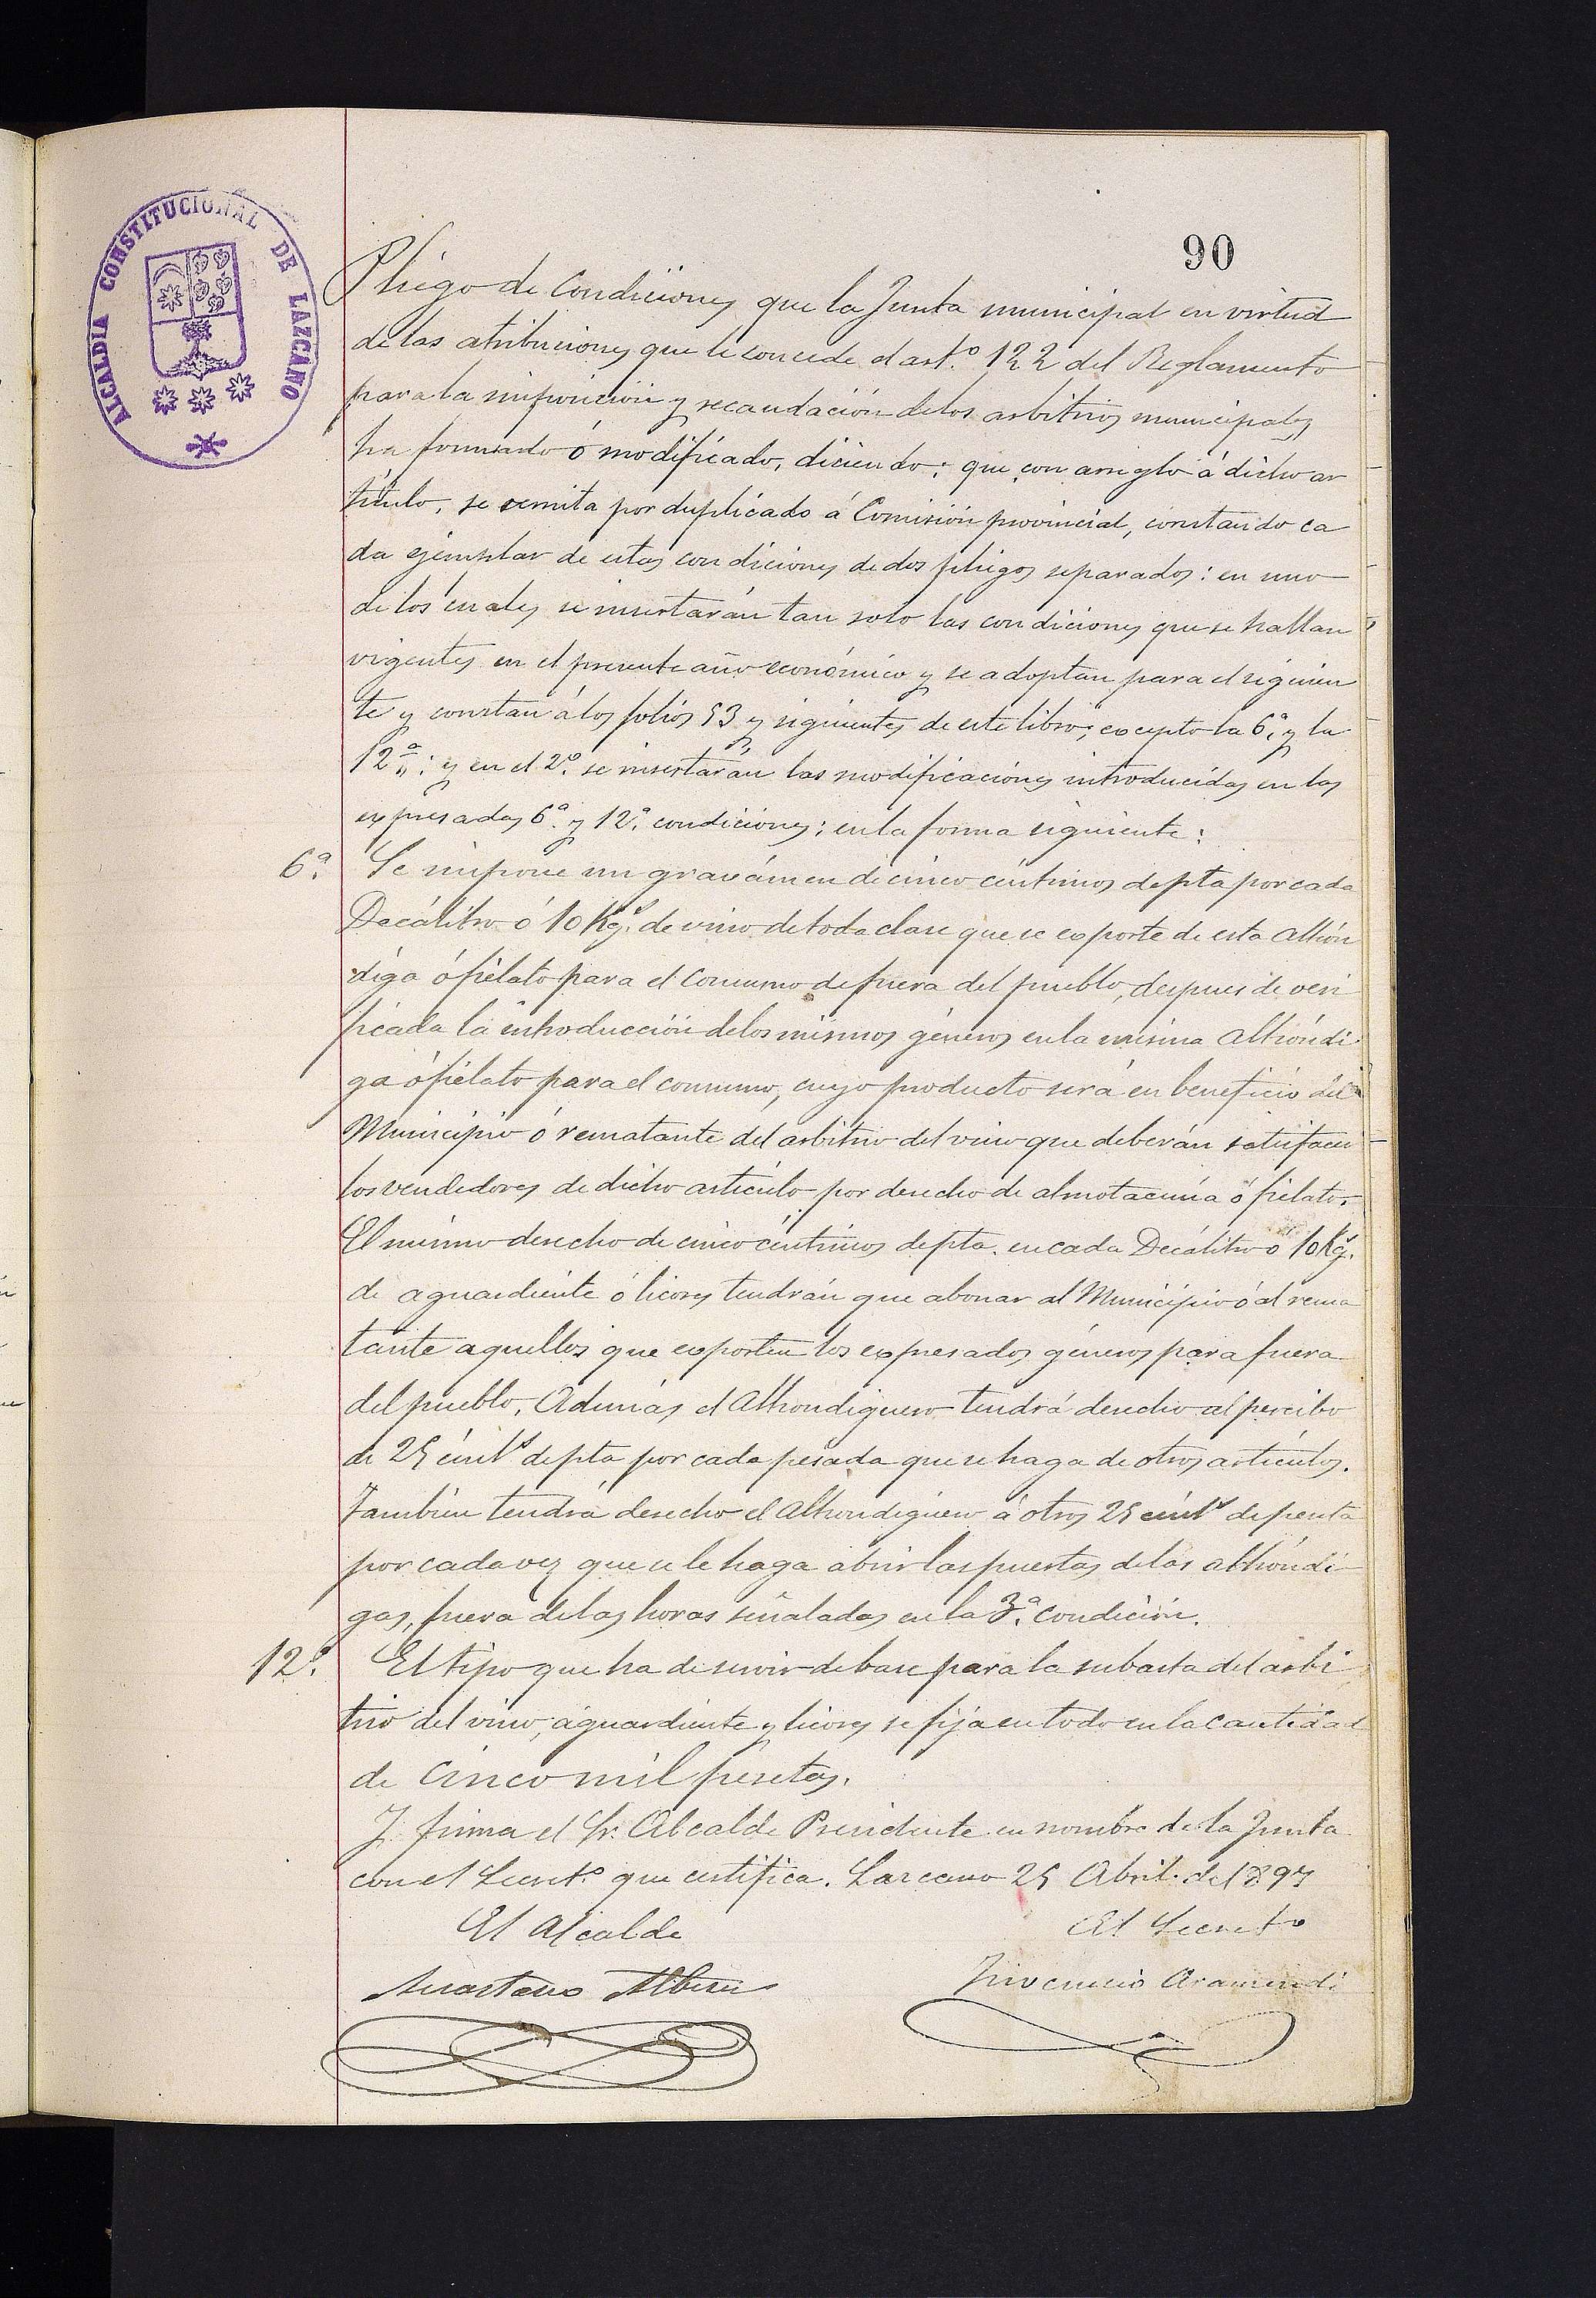 ALCALDIA CONSTITUCIONAL DE LAZCANO
90
Pliego de Condiciones que la Junta municipal en virtud
de las atribuciones que le concede el artº. 122 del Reglamento
para la imposición y recaudación de los arbitrios municipales
ha formado ó modificado, diciendo: que con arreglo á dicho ar
tículo, se remita por duplicado á Comisión provincial, constando ca
da ejemplar de estas condiciones de dos pliegos separados: en uno
de los cuales se insertarán tan solo las condiciones que se hallan
vigentes en el presente año económico y se adoptan para el siguien
te y constan á los folios 53 y siguientes de este libro; excepto la 6ª. y la
12ª.: y en el 2º. se insertarán las modificaciones introducidas en las
expresadas 6ª. y 12ª. condiciones: en la forma siguiente:
6ª. Se impone un gravámen de cinco céntimos de pta por cada
Decálitro ó 10 Kgs. de vino de toda clase que se exporte de esta Alhón
diga ó fielato para el consumo de fuera del pueblo, despues de veri
ficada la introducción de los mismos géneros en la misma Alhóndi
ga ó fielato para el consumo, cuyo producto será en beneficio del
Municipio ó rematante del arbitrio del vino que deberán satisfacer
los vendedores de dicho artículo por derecho de almotacenía ó fielato.
El mismo derecho de cinco céntimos de pta. en cada Decálitro ó 10 Kgs.
de aguardiente ó licores tendrán que abonar al Municipio ó al rema
tante aquellos que exporten los expresados géneros para fuera
del pueblo. Además el Alhondiguero tendrá derecho al percibo
de 25 cénts de pta por cada pesada que se haga de otros artículos.
Tambien tendrá derecho el Alhondiguero á otros 25 cénts de peseta
por cada vez que se le haga abrir las puertas de las alhóndi-
gas, fuera de las horas señaladas en la 3ª. condición.
12ª. El tipo que ha de servir de base para la subasta del arbi
trio del vino, aguardiente y licores se fija en todo en la cantidad
de Cinco mil pesetas.
Y firma el Sr. Alcalde Presidente en nombre de la Junta
con el Secretº que certifica. Lazcano 25 Abril de 1897
El Alcalde
El Secretº
Anastasio Alberdi
Juvencio Aramendi